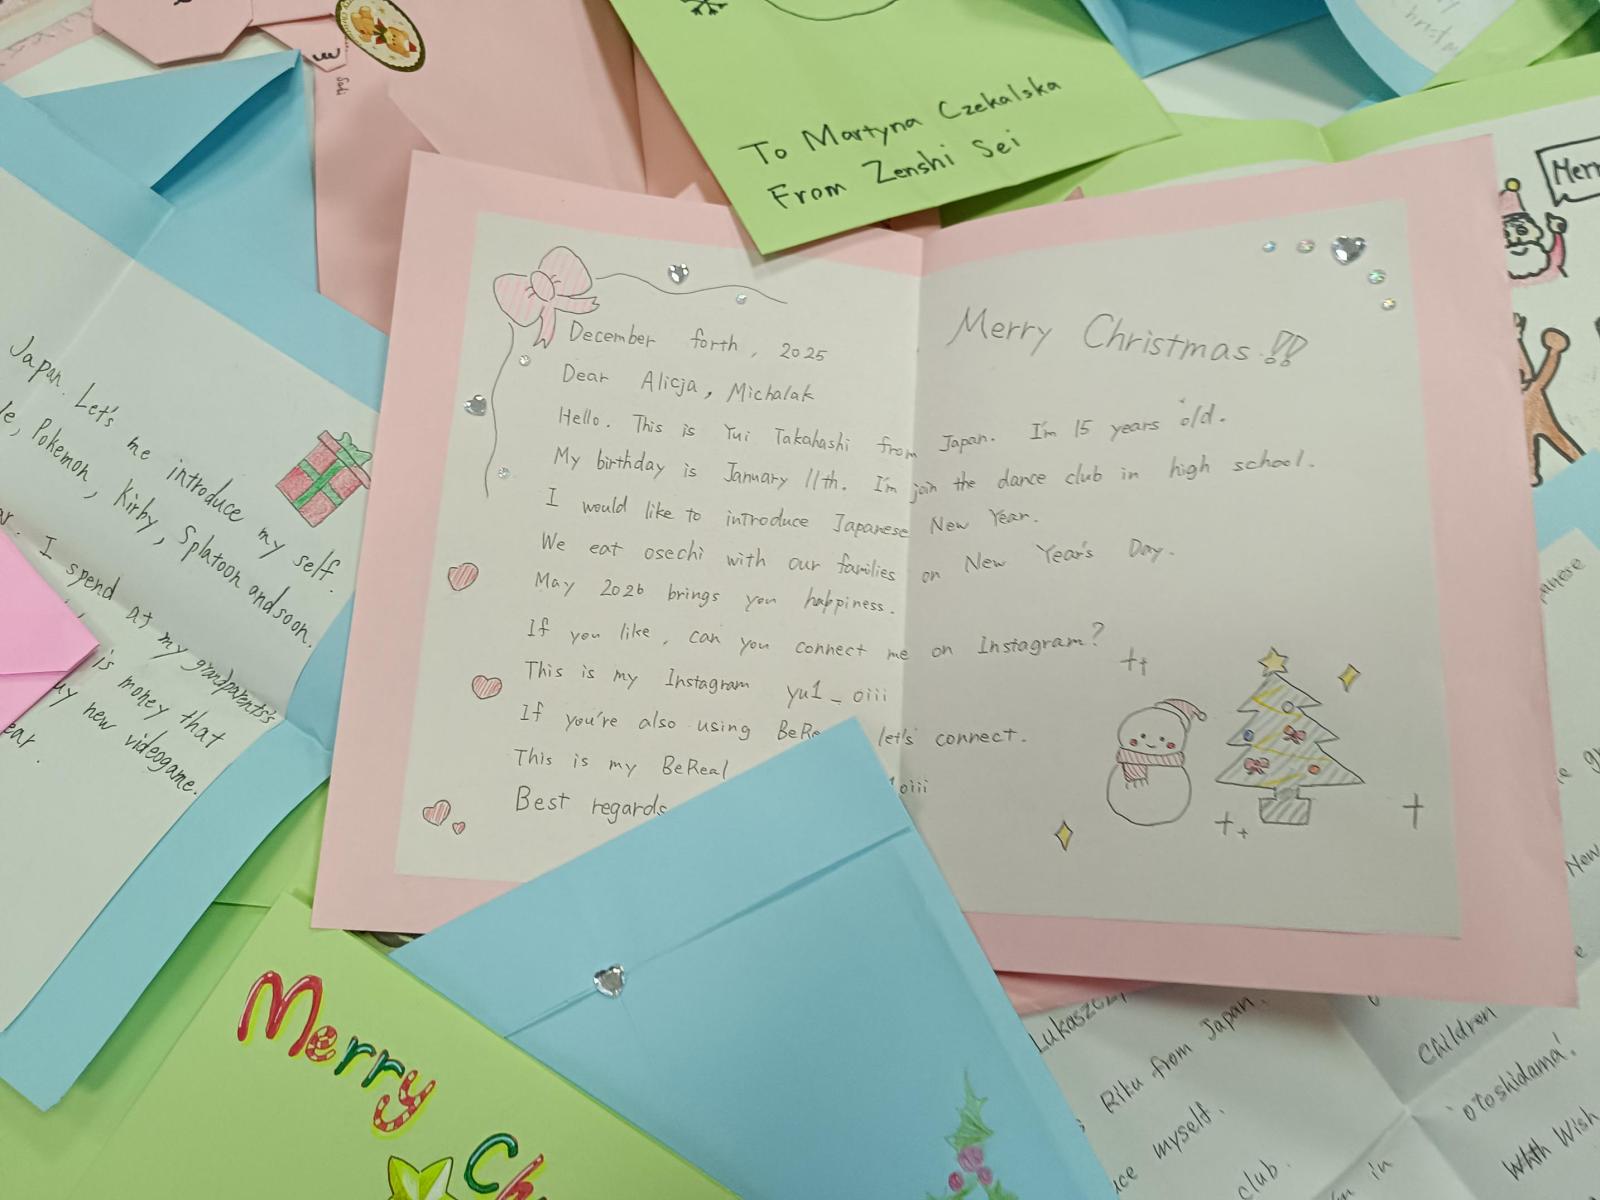 To Martyna Czekalska
From Zenshi Sei
December forth, 2025
Dear Alicja, Michalak
Hello. This is Yui Takahashi from Japan. I'm 15 years old.
My birthday is January 11th. I'm join the dance club in high school.
I would like to introduce Japanese New Year.
We eat osechi with our families on New Year's Day.
May 2026 brings you happiness.
If you like, can you connect me on Instagram?
This is my Instagram yu1_oiii
If you're also using BeRe let's connect.
This is my BeReal oiii
Best regards
Merry Christmas!!
Japan. Let's me introduce my self.
Pokemon, Kirby, Splatoon andsoon.
I spend at my grandparents's
is money that
new videogame.
Merry
Merry
Riku from Japan.
myself.
club.
in
Children
'otoshidama'.
With Wish
New